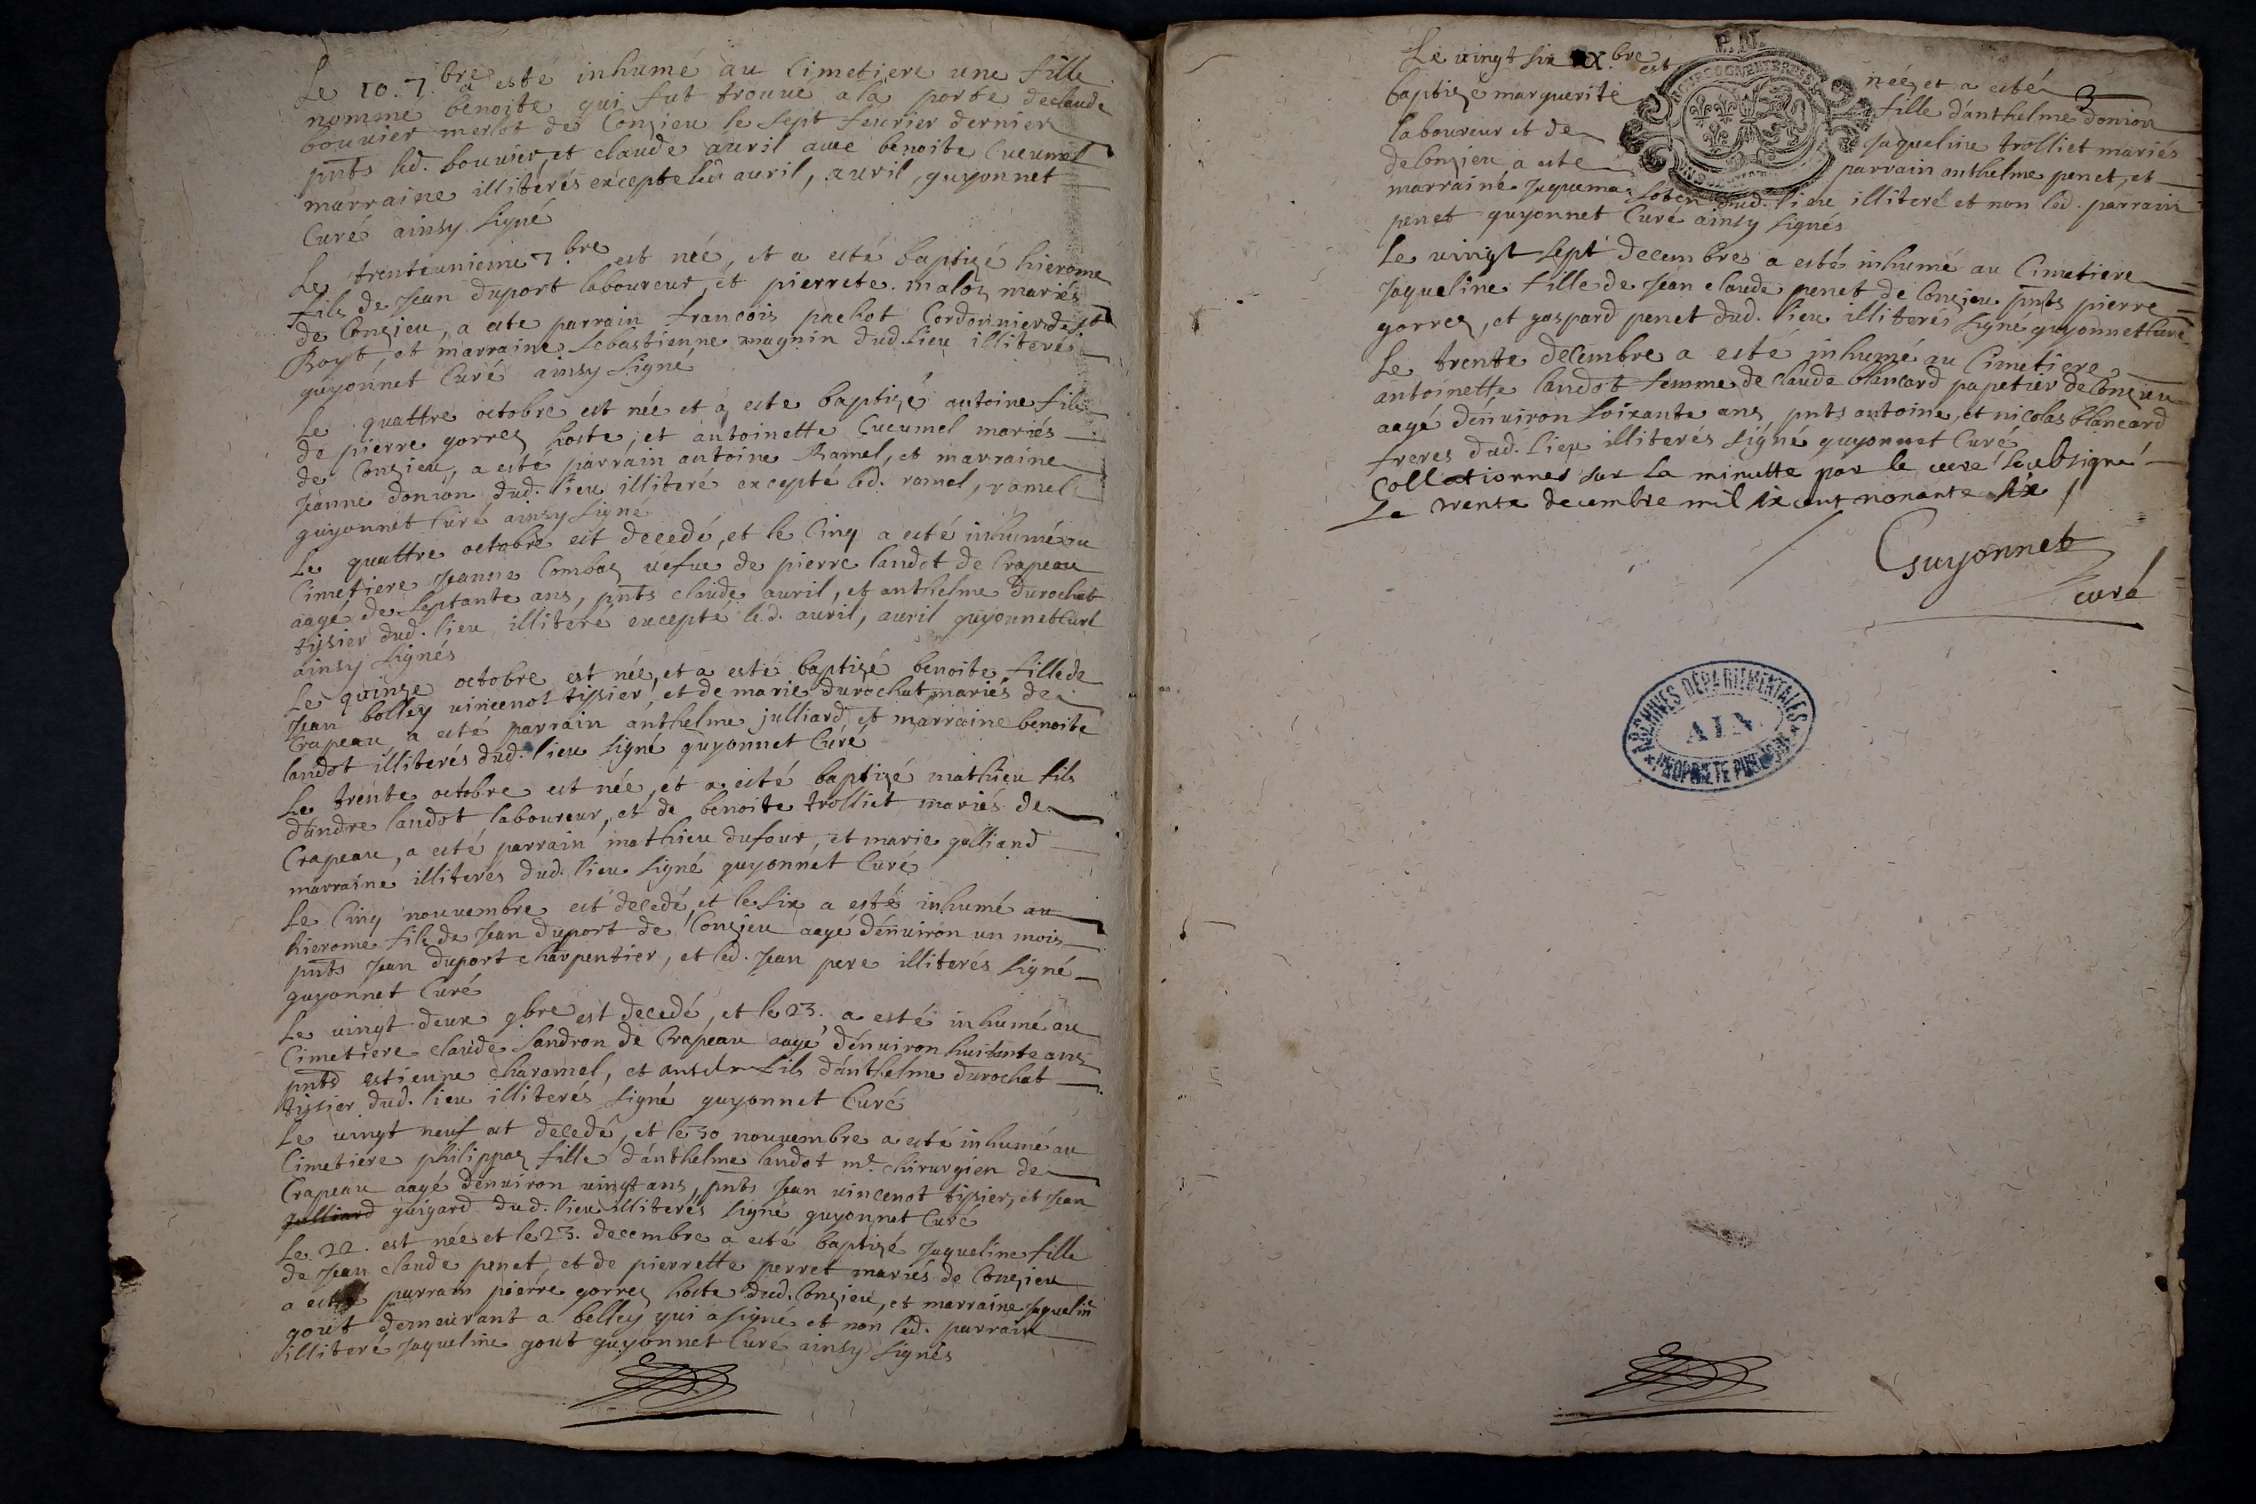 Le 10. 7.bre a esté inhumé au Cimetiere une fille
nommé benoite qui fut trouué a la porte de claude
bouuier merlot de Conzieu le sept feurier dernier
pnts led. bouuier, et claude auril auec benoite Cucumel
marraine illiterés excepté led auril, auril, guyonnet
Curé ainsy signé
Le trenteunieme 7.bre est née, et a esté baptizé hierome
fils de Jean duport laboureur, et pierrete maloz mariés
de Conzieu, a esté parrain francois pachot Cordonnier de st
Boys, et marraine sebastienne magnin dud. lieu illiteré
guyonnet Curé ainsy signé
Le quattre octobre est née et a este baptizé antoine fils
de pierre gorrez hoste, et antoinette Cucumel mariés
de Conzieu, a esté parrain antoine Ramel, et marraine
Jeanne donion dud. lieu illiteré excepté led. ramel, ramel
guyonnet Curé ainsy signé
Le quattre octobre est decedé, et le Cinq a esté inhumé au
Cimetiere Jeanne Combaz uefue de pierre landot de Crapeau
aagé de septante ans, pnts claude auril, et anthelme durochat
tissier dud. lieu illiteré excepté led. auril, auril guyonnet Curé
ainsy signés
Le quinze octobre est née, et a esté baptizé benoite fille de
Jean bolley uincenot tissier, et de marie durochat mariés de
Crapeau a esté parrain anthelme julliard et marraine benoite
landot illiterés dud. lieu signé guyonnet Curé
Le trente octobre est née, et a esté baptizé mathieu fils
d'andre landot laboureur, et de benoite trolliet mariés de
Crapeau, a esté parrain mathieu dufour, et marie galliand
marraine illiterés dud. lieu signé guyonnet Curé
Le Cinq nouuembre est decedé, et le six a esté inhumé au
hierome fils de Jean duport de Conzieu aagé d'enuiron un mois
pnts Jean duport charpentier, et led. Jean pere illiterés signé
guyonnet Curé
Le uingt deux 9bre est decedé, et le 23. a esté inhumé au
Cimetiere claude landron de Crapeau aagé d'enuiron huitante ans
pnts estienne charamel, et fils d'anthelme durochat
tissier dud. lieu illiterés signé guyonnet Curé
Le uingt neuf est decedé, et le 30 nouuembre a esté inhumé au
Cimetiere philippaz fille d'anthelme landot mr. chirurgien de
Crapeau aagé d'enuiron uingt ans, pnts Jean uincenot tissier, et Jean
guigard dud. lieu illiterés signé guyonnet Curé
Le 22. est née et le 23. decembre a esté baptizé Jaqueline fille
de Jean claude penet, et de pierrette perret mariés de Conzieu
a esté parrain pierre gorrez hoste dud. Conzieu, et marraine Jaqueline
gout demeurant a belley qui a signé et non led. parrain
illiteré Jaqueline gout guyonnet Curé ainsy signés
P.N.
3
Le uingt six xbre est née, et a esté
baptizé marguerite fille d'anthelme donion
laboureur et de Jaqueline trolliet mariés
de Conzieu a esté parrain anthelme penet, et
marraine Jaquema dud. lieu illiteré et non led. parrain
penet guyonnet Curé ainsy signés
Le uingt sept decembre a esté inhumé au Cimetiere
Jaqueline fille de Jean claude penet de Conzieu pnts pierre
gorrez, et gaspard penet dud. lieu illiterés signé guyonnet Curé
Le trente decembre a esté inhumé au Cimetiere
antoinette landot femme de claude blancard papetier de Conzieu
aagé denuiron soixante ans pnts antoine, et nicolas blancard
freres dud. lieu illiterés signé guyonnet Curé
Collationner sur la minutte par le curé soubsigné
Le trente decembre mil six cent nonante six
Guyonnet
curé
ARCHIVES DÉPARTEMENTALES
AIN
PROPRIÉTÉ PUBLIQUE